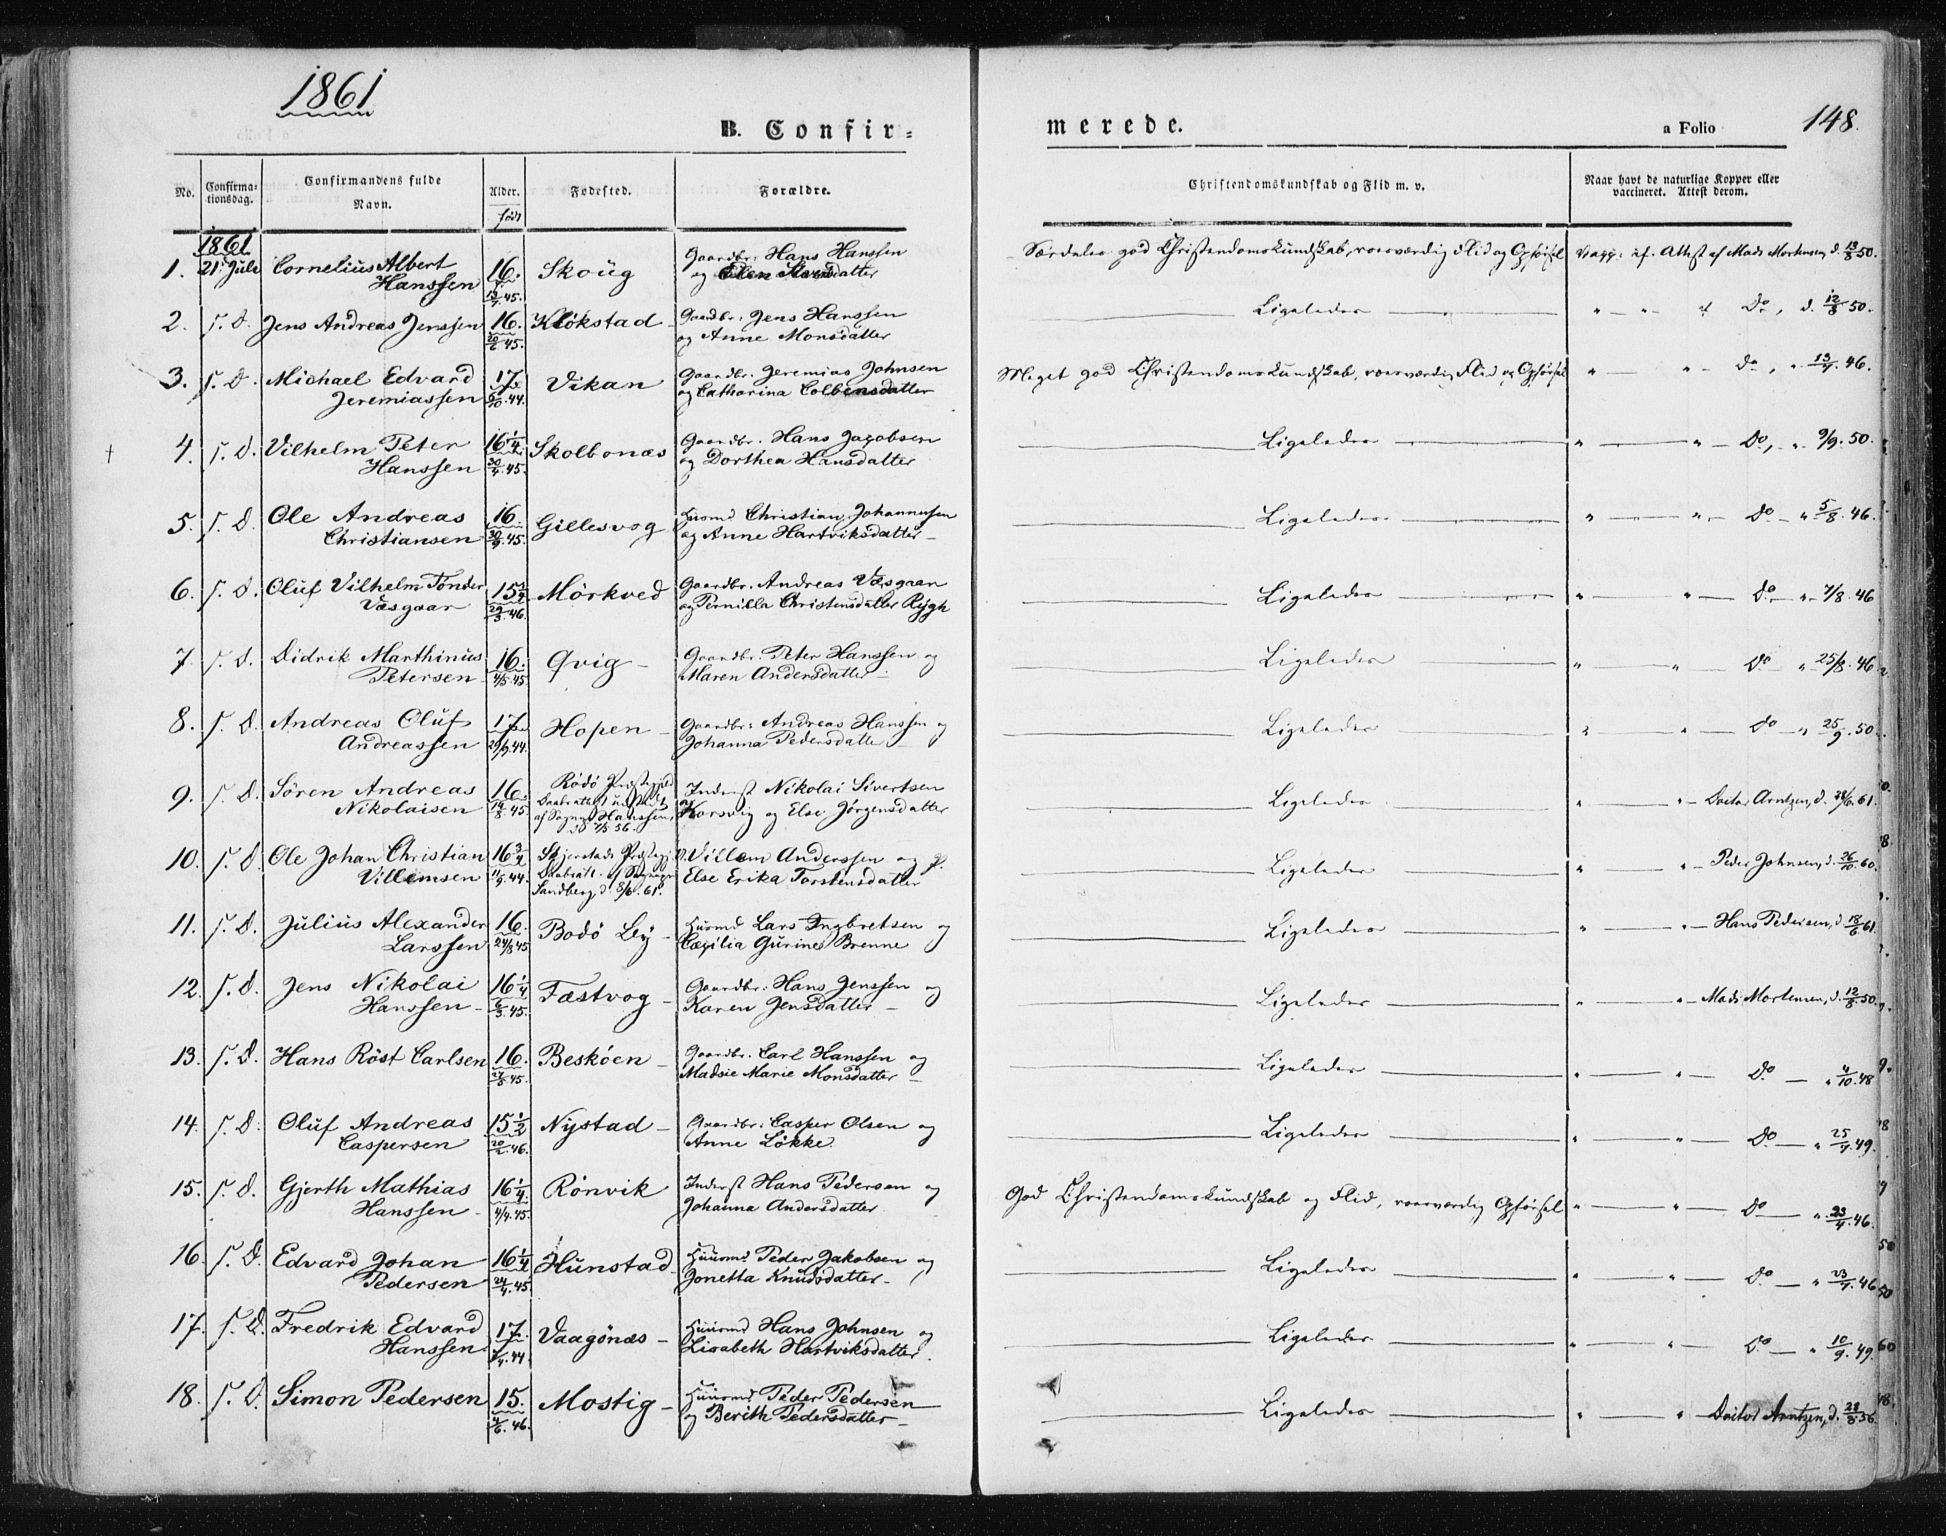 1861
B. Confir=
merede.
a Folio 148.
No.
Confirma-
tionsdag.
Confirmandens fulde
Navn.
Alder.
Fødested.
Forældre.
Christendomskundskab og Flid m. v.
Naar havt de naturlige Kopper eller
vaccineret. Attest derom.
1861
1. 21 Juli Cornelius Albert Hanssen 16. Skoug Gaardbr. Hans Hanssen og Særdeles god Christendomskundskab, roesværdig Flid og Opførsel Vacc: if. Attest af Mads Mortensen, d. 13/8 50.
2. s. D. Jens Andreas Jenssen 16. 20/6 45. Klökstad Gaardbr. Jens Hanssen og Anne Monsdatter Ligeledes " " Do, d. 12/8 50.
3. s. D. Michael Edvard Jeremiassen 17 44. Vikan Gaardbr. Jeremias Johnsen og Catharina Colbensdatter Meget god Christendomskundskab, roesværdig Flid og Opførsel " " Do, " 13/7 46.
4. s. D. Vilhelm Peter Hanssen 16 1/4 30/4 45. Skolbonæs Gaardbr. Hans Jacobsen og Dorthea Hansdatter Ligeledes " " Do, " 9/9. 50.
5. s. D. Ole Andreas Christiansen 16. 45. Gillesvog Huusmd Christian Johannessen og Anne Hartviksdatter Ligeledes " " Do " 5/8. 46.
6. s. D. Oluf Vilhelm Tönder Væsgaar 29/3 46. Mörkved Gaardbr. Andreas Væsgaar og Pernilla Christensdatter Rygh Ligeledes " " Do " 7/8. 46
7. s. D. Didrik Marthinus Petersen 16. 4/5. 45. Qvig Gaardbr. Peter Hanssen og Maren Andersdatter Ligeledes " " Do " 25/8. 46
8. s. D. Andreas Oluf Andreassen 17 29/9. 44. Hopen Gaardbr: Andreas Hanssen og Johanna Pedersdatter Ligeledes " " Do " 25/9. 50
9. s. D. Sören Andreas Nikolaisen 16. 14/8 45. Rödö Præstegjeld Inderst Nikolai Sivertsen Korsvig og Else Jørgensdatter Ligeledes " " Doctor Arntzen, d. 61.
10. s. D. Ole Johan Christian Villemsen 16 3/4 11/9. 44. Skjerstads Præstegj. Sandberg d. 8/6. 61. Villem Anderssen og Else Erika Torstensdatter Ligeledes " " Peder Johnsen, d. 26/10 60.
11. s. D. Julius Alexander Larssen 16. 24/8 45 Bodö By Huusmd Lars Ingbretsen og Cecilia Gurine Brenne Ligeledes " " Hans Pedersen, d. 18/6 61
12. s. D. Jens Nikolai Hanssen 16 1/4 6/3. 45. Fæstvog Gaardbr: Hans Jenssen og Karen Jensdatter Ligeledes " " Mads Mortensen, d. 12/8. 50.
13. s. D. Hans Röst Carlsen 16. 45. Besköen Gaardbr. Carl Hanssen og Madsie Marie Monsdatter Ligeledes " " Do " 4/10. 48
14. s. D. Oluf Andreas Caspersen 15 1/2 20/2. 46. Nystad Gaardbr: Casper Olsen og Anne Lökke Ligeledes " " Do " 25/7. 49.
15. s. D. Gjerth Mathias Hanssen 16 1/4 4/4. 45. Rönvik Inderst Hans Pedersen og Johanna Andersdatter God Christendomskundskab og Flid, roesværdig Opførsel " " Do " 23/7. 46.
16. s. D. Edvard Johan Pedersen 16 1/4 24/4. 45 Hunstad Huusmd Peder Jakobsen og Jonetta Knudsdatter Ligeledes " " Do " 23/7. 46
17. s. D. Fredrik Edvard Hanssen 17. 44. Vaagönæs Huusmd Hans Johnsen og Lisabeth Hartviksdatter Ligeledes " " Do " 10/9. 49.
18. s. D. Simon Pedersen 15. 46. Mostig Huusmd Peder Pedersen og Berith Pedersdatter Ligeledes " " Doctor Arntzen, d.